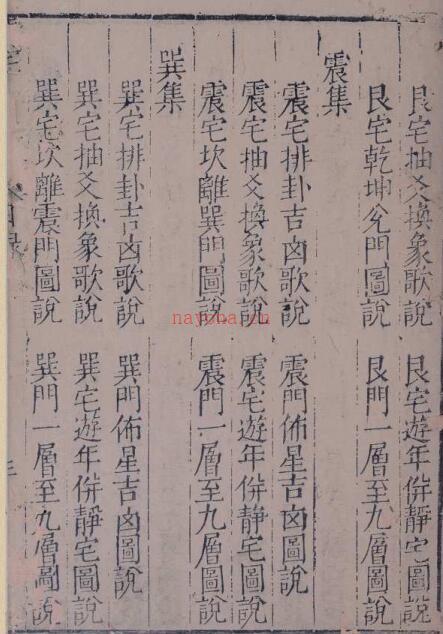 艮宅抽爻換象歌說 艮宅遊年併靜宅圖說
艮宅乾坤兌門圖說 艮門一層至九層圖說
震集
震宅排卦吉凶歌說 震門佈星吉凶圖說
震宅抽爻換象歌說 震宅遊年併靜宅圖說
震宅坎離巽門圖說 震門一層至九層圖說
巽集
巽宅排卦吉凶歌說 巽門佈星吉凶圖說
巽宅抽爻換象歌說 巽宅遊年併靜宅圖說
巽宅坎離震門圖說 巽門一層至九層圖說
目錄
nayona.cn